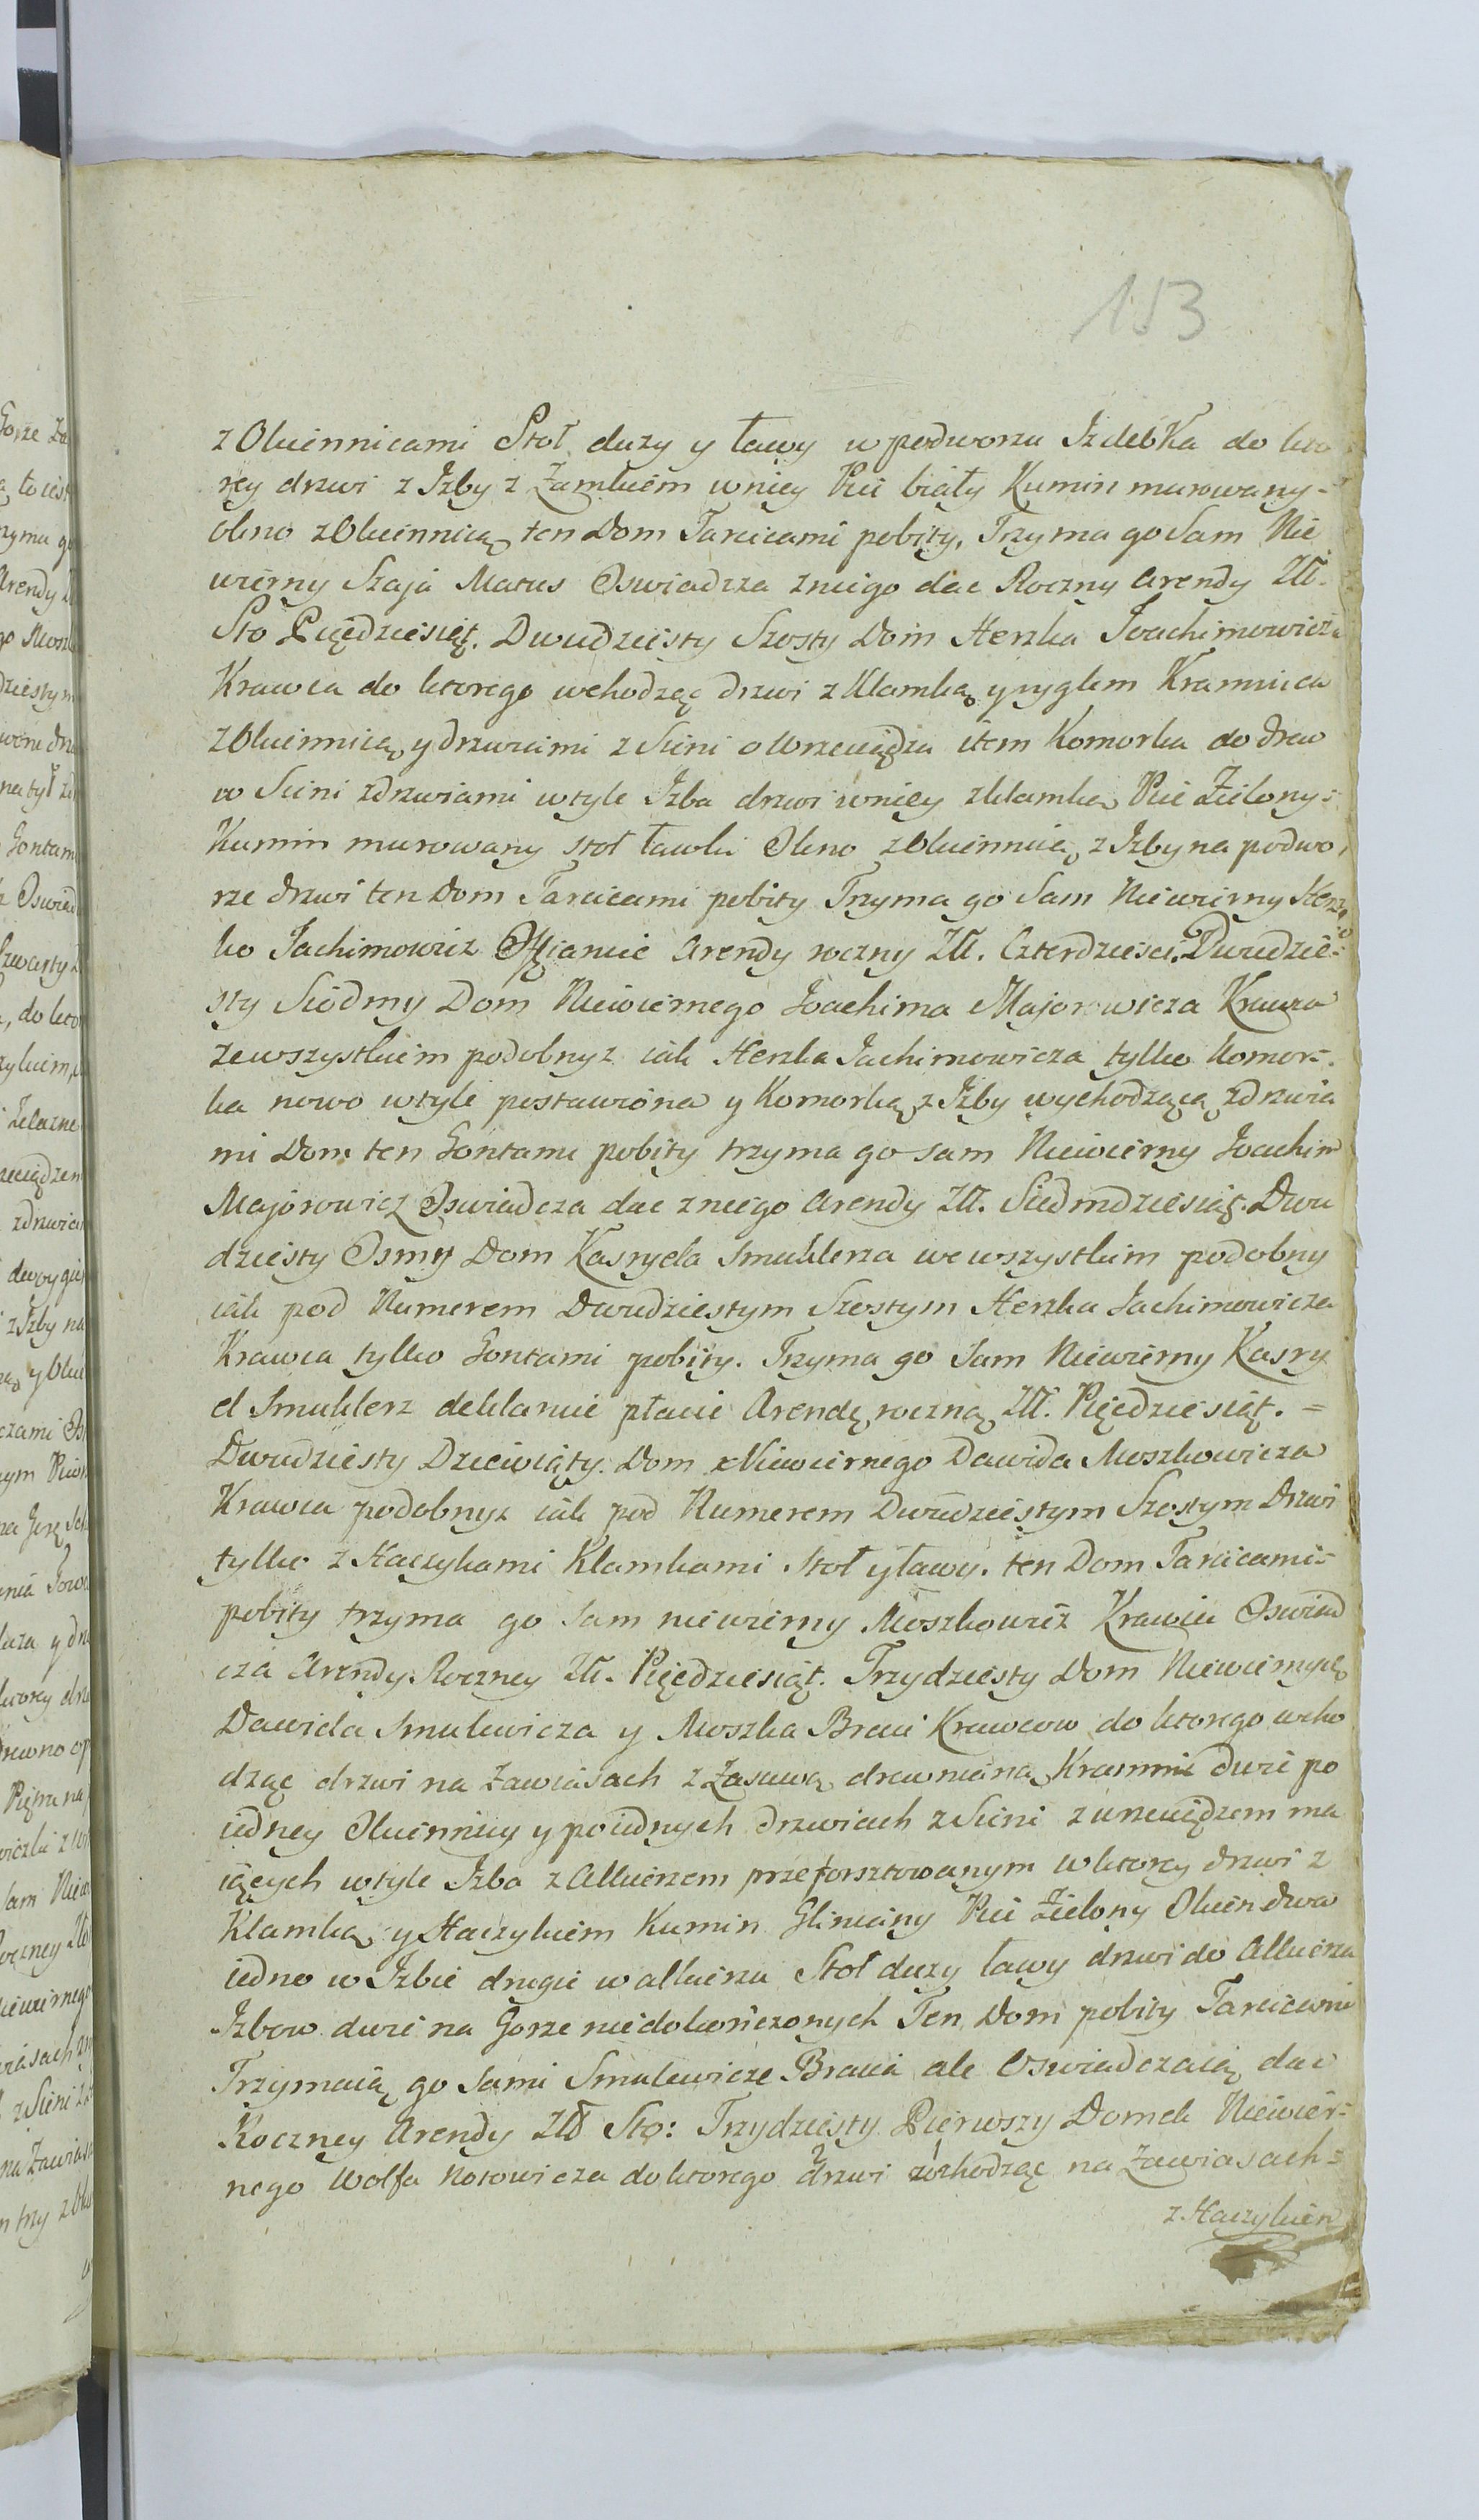 153
z Okiennicami Stoł duzy y ławy w podworzu Izdebka do kto
rey drzwi z Izby z Zamkiem w niey Piec biały Kumin murowany-
okno z Okiennicą, ten Dom Tarcicami pobity, Trzyma go Sam Nie
wierny Szaja Matus Oswiadcza z niego dac Roczny Arendy Złł.
Sto Pięędziesiąt. Dwudziesty Szosty Dom Herzka Joachimowicza
Krawca do ktorego wchodząc drzwi z Klamką y ryglem Kramnica
z Okiennicą y drzwiami z Sieni o Wrzeciądzu item Komorka do drew
w Sieni z drzwiami w tyle Izba drzwi w niey z klamką Piec Zielony=
Kumin murowany stoł ławki Okno z Okiennicą z Izby na podwo,
rze drzwi ten Dom Tarcicami pobity Trzyma go Sam Niewierny Hersz
ko Jachimowicz Ofiaruie Arendy roczny Złł. Czterdziesci. Dwudzie=
sty Siodmy Dom Niewiernego Joachima Majorowicza Krawca
ze wszystkiem podobnyz iak Herzka Jachimowicza tylko Komor=
ka nowo w tyle postawiona y Komorką z Izby wychodzącą z drzwia
mi Dom ten Gontami pobity trzyma go sam Niewierny Joachim
Majorowicz Oswiadcza dac z niego Arendy Złł. Siedmdziesiąt. Dwu
dziesty Osmy Dom Kasryela Smuklerza we wszystkim podobny
iak pod Numerem Dwudziestym Szostym Herzka Jachimowicza
Krawca tylko Gontami pobity. Trzyma go Sam Niewierny Kasry
el Smuklerz deklaruie płacic Arendę roczną Złł. Pięędziesiąt. =
Dwudziesty Dziewiąty. Dom Niewiernego Dawida Moszkowicza
Krawca podobnyz iak pod Numerem Dwudziestym Szostym Drzwi
tylko z Haczykami Klamkami Stoł y ławy. ten Dom Tarcicami=
pobity trzyma go Sam niewierny Moszkowicz Krawiec Oswiad
cza Arendy Roczney Złł. Pięędziesiąt. Trzydziesty Dom Niewiernych
Dawida Smulewicza y Moszka Braci Krawcow do ktorego wcho
dząc drzwi na Zawiasach z Zasuwą drewnianą Kramnic dwie po
iedney Okiennicy y po iednych drzwiach z Sieni z wrzeciądzem ma
iących w tyle Izba z Alkierzem przeforsztowanym w ktorey drzwi z
Klamką y Haczykiem Kumin Gliniany Piec Zielony Okien dwa
iedno w Izbie drugie w alkierzu Stoł duzy ławy drzwi do Alkierza
Izbow dwie na Gorze niedokończonych Ten Dom pobity Tarcicami
Trzymaią go Sami Smulewicze Bracia ale Oswiadczaią dac
Roczney Arendy Złł Sto: Trzydziesty Pierwszy Domek Niewier=
nego Wolfa Notowicza do ktorego drzwi wchodząc na Zawiasach=
z Haczykiem